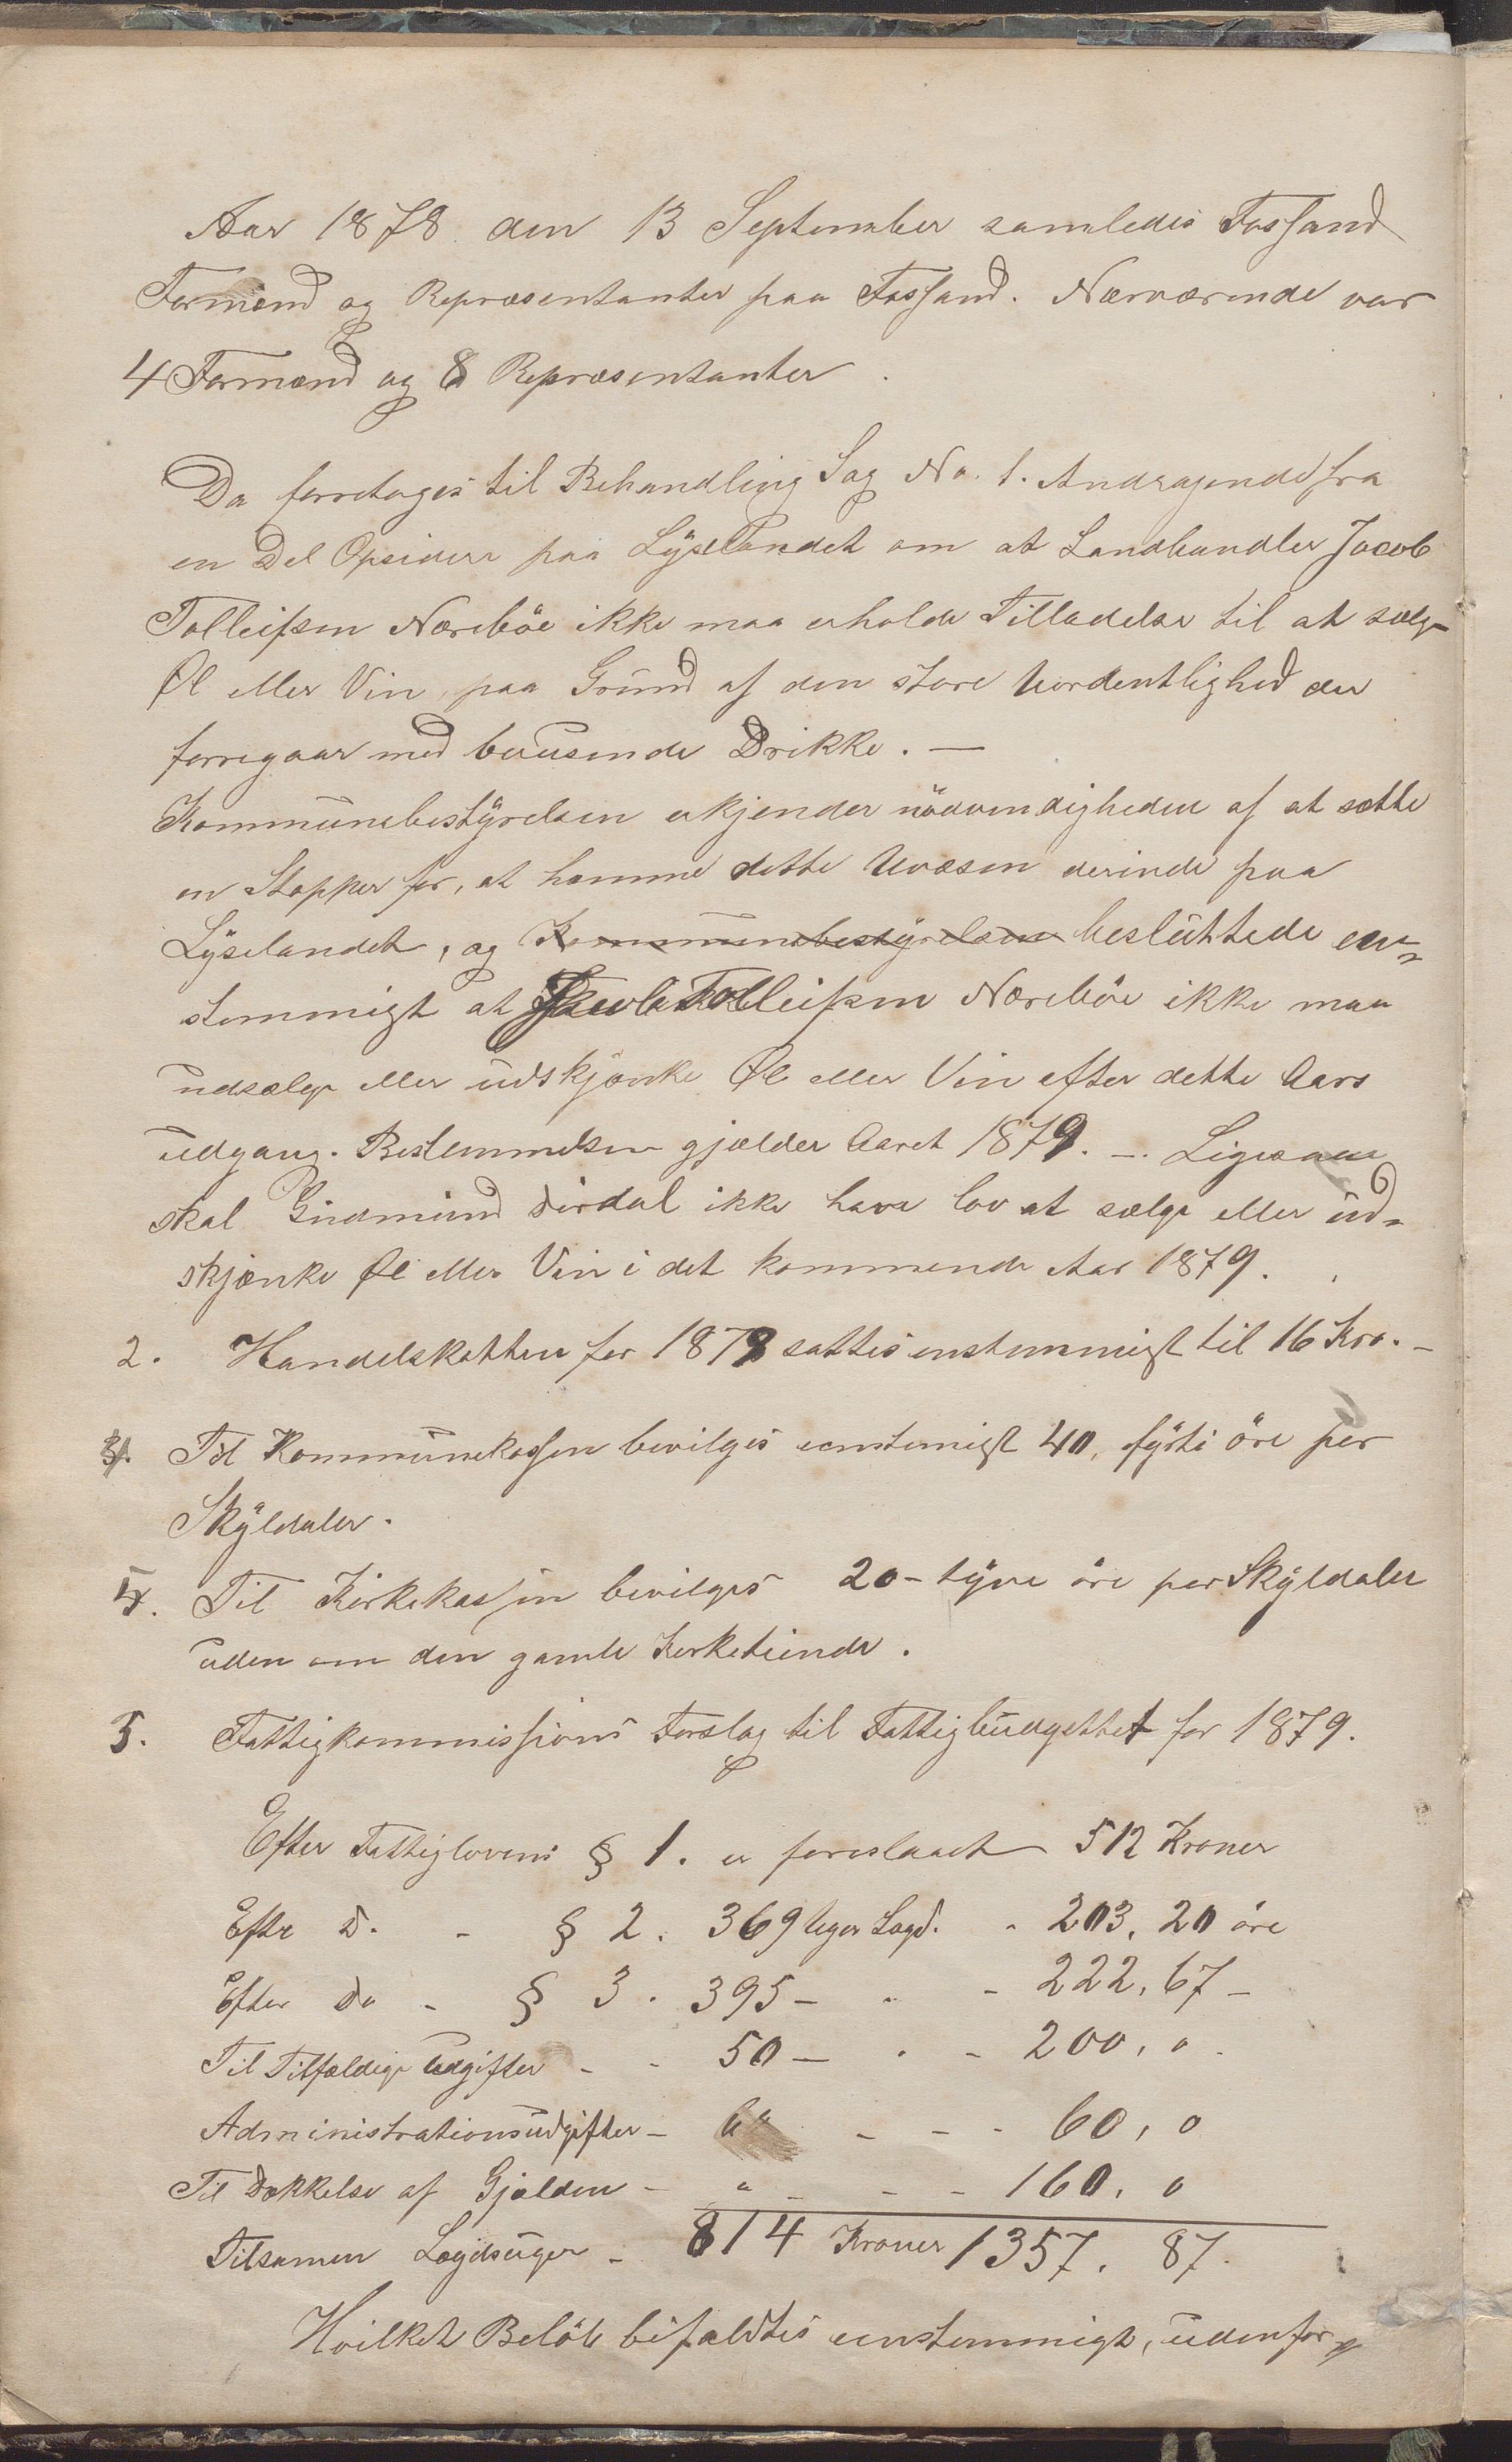 Aar 1878 den 13 September samledes Fossand
Formænd og Repræsentanter paa Fossand. Nærværende var
4 Formænd og 8 Repræsentanter.
Da forretoges til Behandling Sag No. 1. Andragende fra
en Del Opsidere paa Lyselandet om at Landhandler Jacob
Tolleifsen Næreböe ikke maa erholde Tilladelse til at sælge
Øl eller Vin, paa Grund af den store Uordentlighed der
forregaar med berusende Drikke. —
Kommunebestyrelsen erkjender nödvendigheden af at sætte
en Stopper for, at hæmme dette Uvæsen derinde paa
Lyselandet, og Kommunebestyrelsen besluttede een-
stemmigt at Tolleifsen Næreböe ikke maa
udsælge eller udskjænke Øl eller Vin efter dette Aars
udgang. Bestemmelsen gjælder Aaret 1879. —. Ligesaa
skal Gudmund Dirdal ikke have lov at sælge eller ud-
skjænke Øl eller Vin i det kommende Aar 1879.
2. Handelskatten for 1879 sattes enstemmigt til 16 Kro. —
3. Til Kommunekassen bevilges eenstemigt 40, fyrti öre per
Skyldaler.
4. Til Kirkekassen bevilges 20 - tyve öre per Skyldaler
uden om den gamle Kirketiende.
5. Fattigkommissions Forslag til Fattigbudgettet for 1879.
Efter Fattiglovens § 1. er foreslaaet 512 Kroner
Efter D. - § 2. 369 Uger Lægd. - 203, 20 öre
Efter Do - § 3. 395 — " - 222, 67 —
Til Tilfældige Udgifter - - 50 — " - 200, 0 -
Administrationsudgifter - " - - - 60, 0
Til Dækkelse af Gjælden - " - - - 160, 0
Tilsamen Lægdsuger - 814 Kroner 1357. 87.
Hvilket Belöb bifaldtes eenstemmigt, udenfor